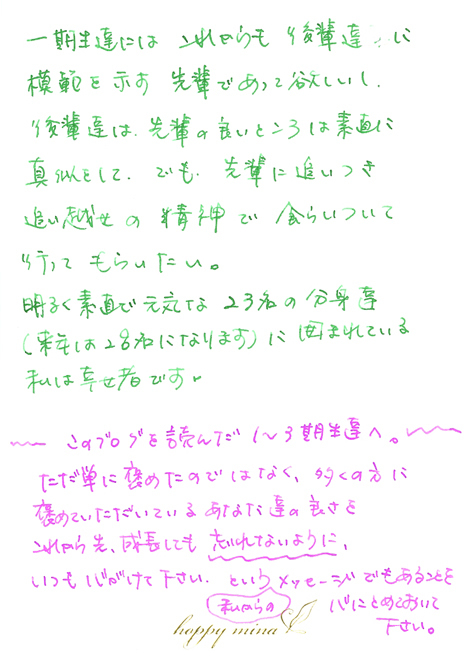 一期生達には これからも 後輩達に
模範を示す 先輩であって欲しいし、
後輩達は、先輩の良いところは素直に
真似をして、でも、先輩に追いつき
追い越せの精神で 食らいついて
行って もらいたい。
明るく素直で元気な 23名の分身達
(来年は28名になります)に囲まれている
私は幸せ者です。
このブログを読んだ 1〜3期生達へ。
ただ単に褒めたのではなく、多くの方に
褒めていただいている あなた達の良さを
これから先、成長しても 忘れないように、
いつも心がけて下さい。という メッセージでもあることを
私からの 心にとめておいて
下さい。
happy mina